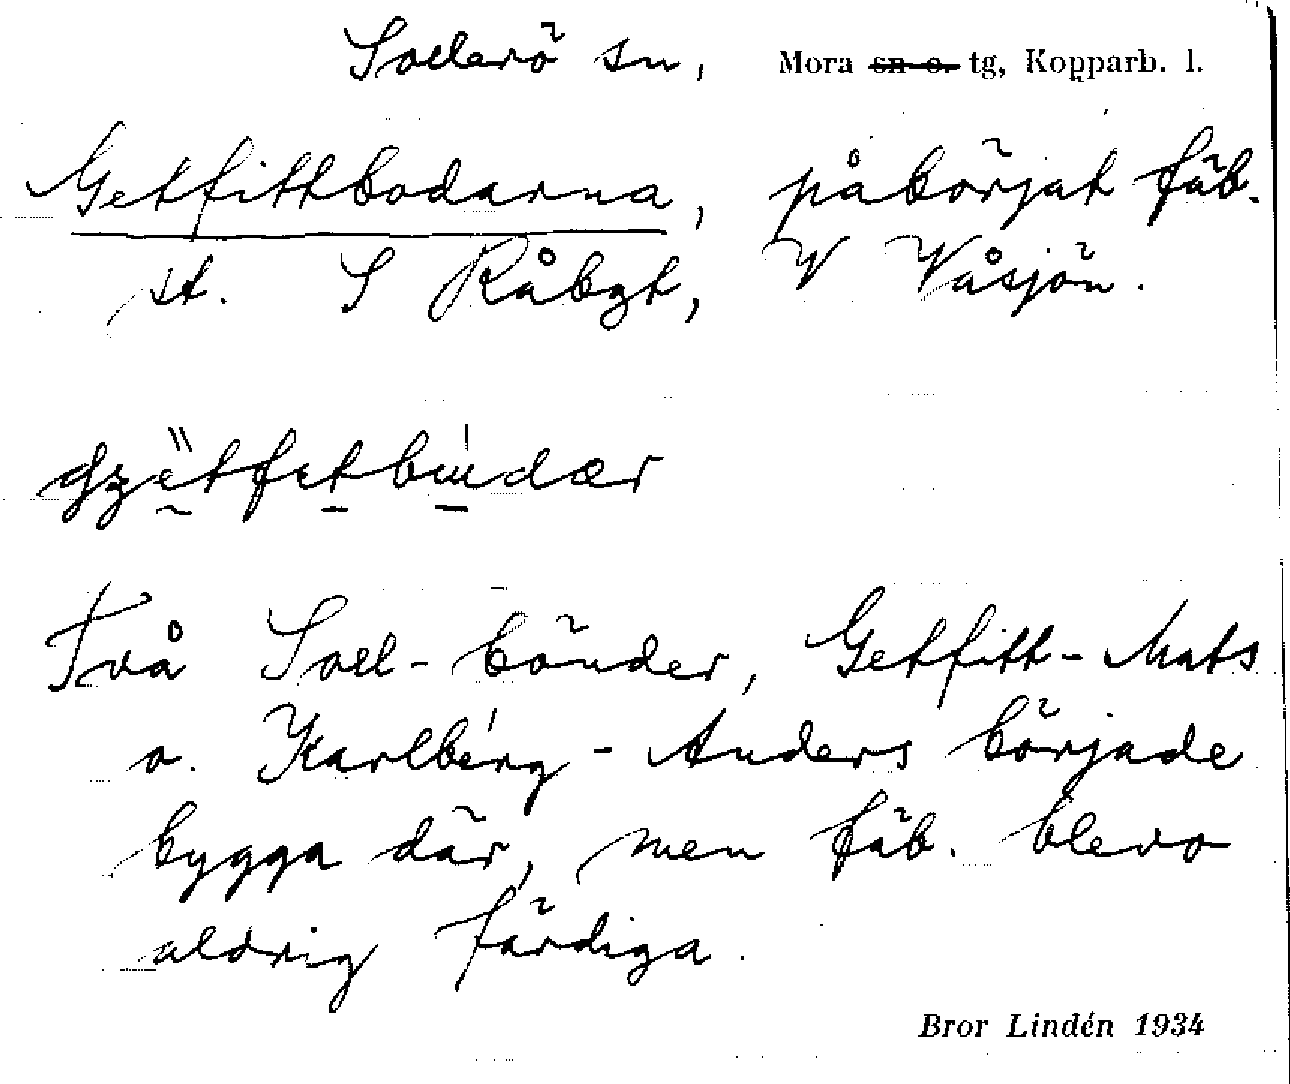 Sollerö sn, Mora sn o. tg, Kopparb. l.
Getfittbodarna, påbörjat fäb.
st. S Råbgt, V Våsjön.
Två Soll-bönder, Getfitt-Mats
o. Karlbérg-Anders började
bygga där, men fäb. blevo
aldrig färdiga.
Bror Lindén 1934